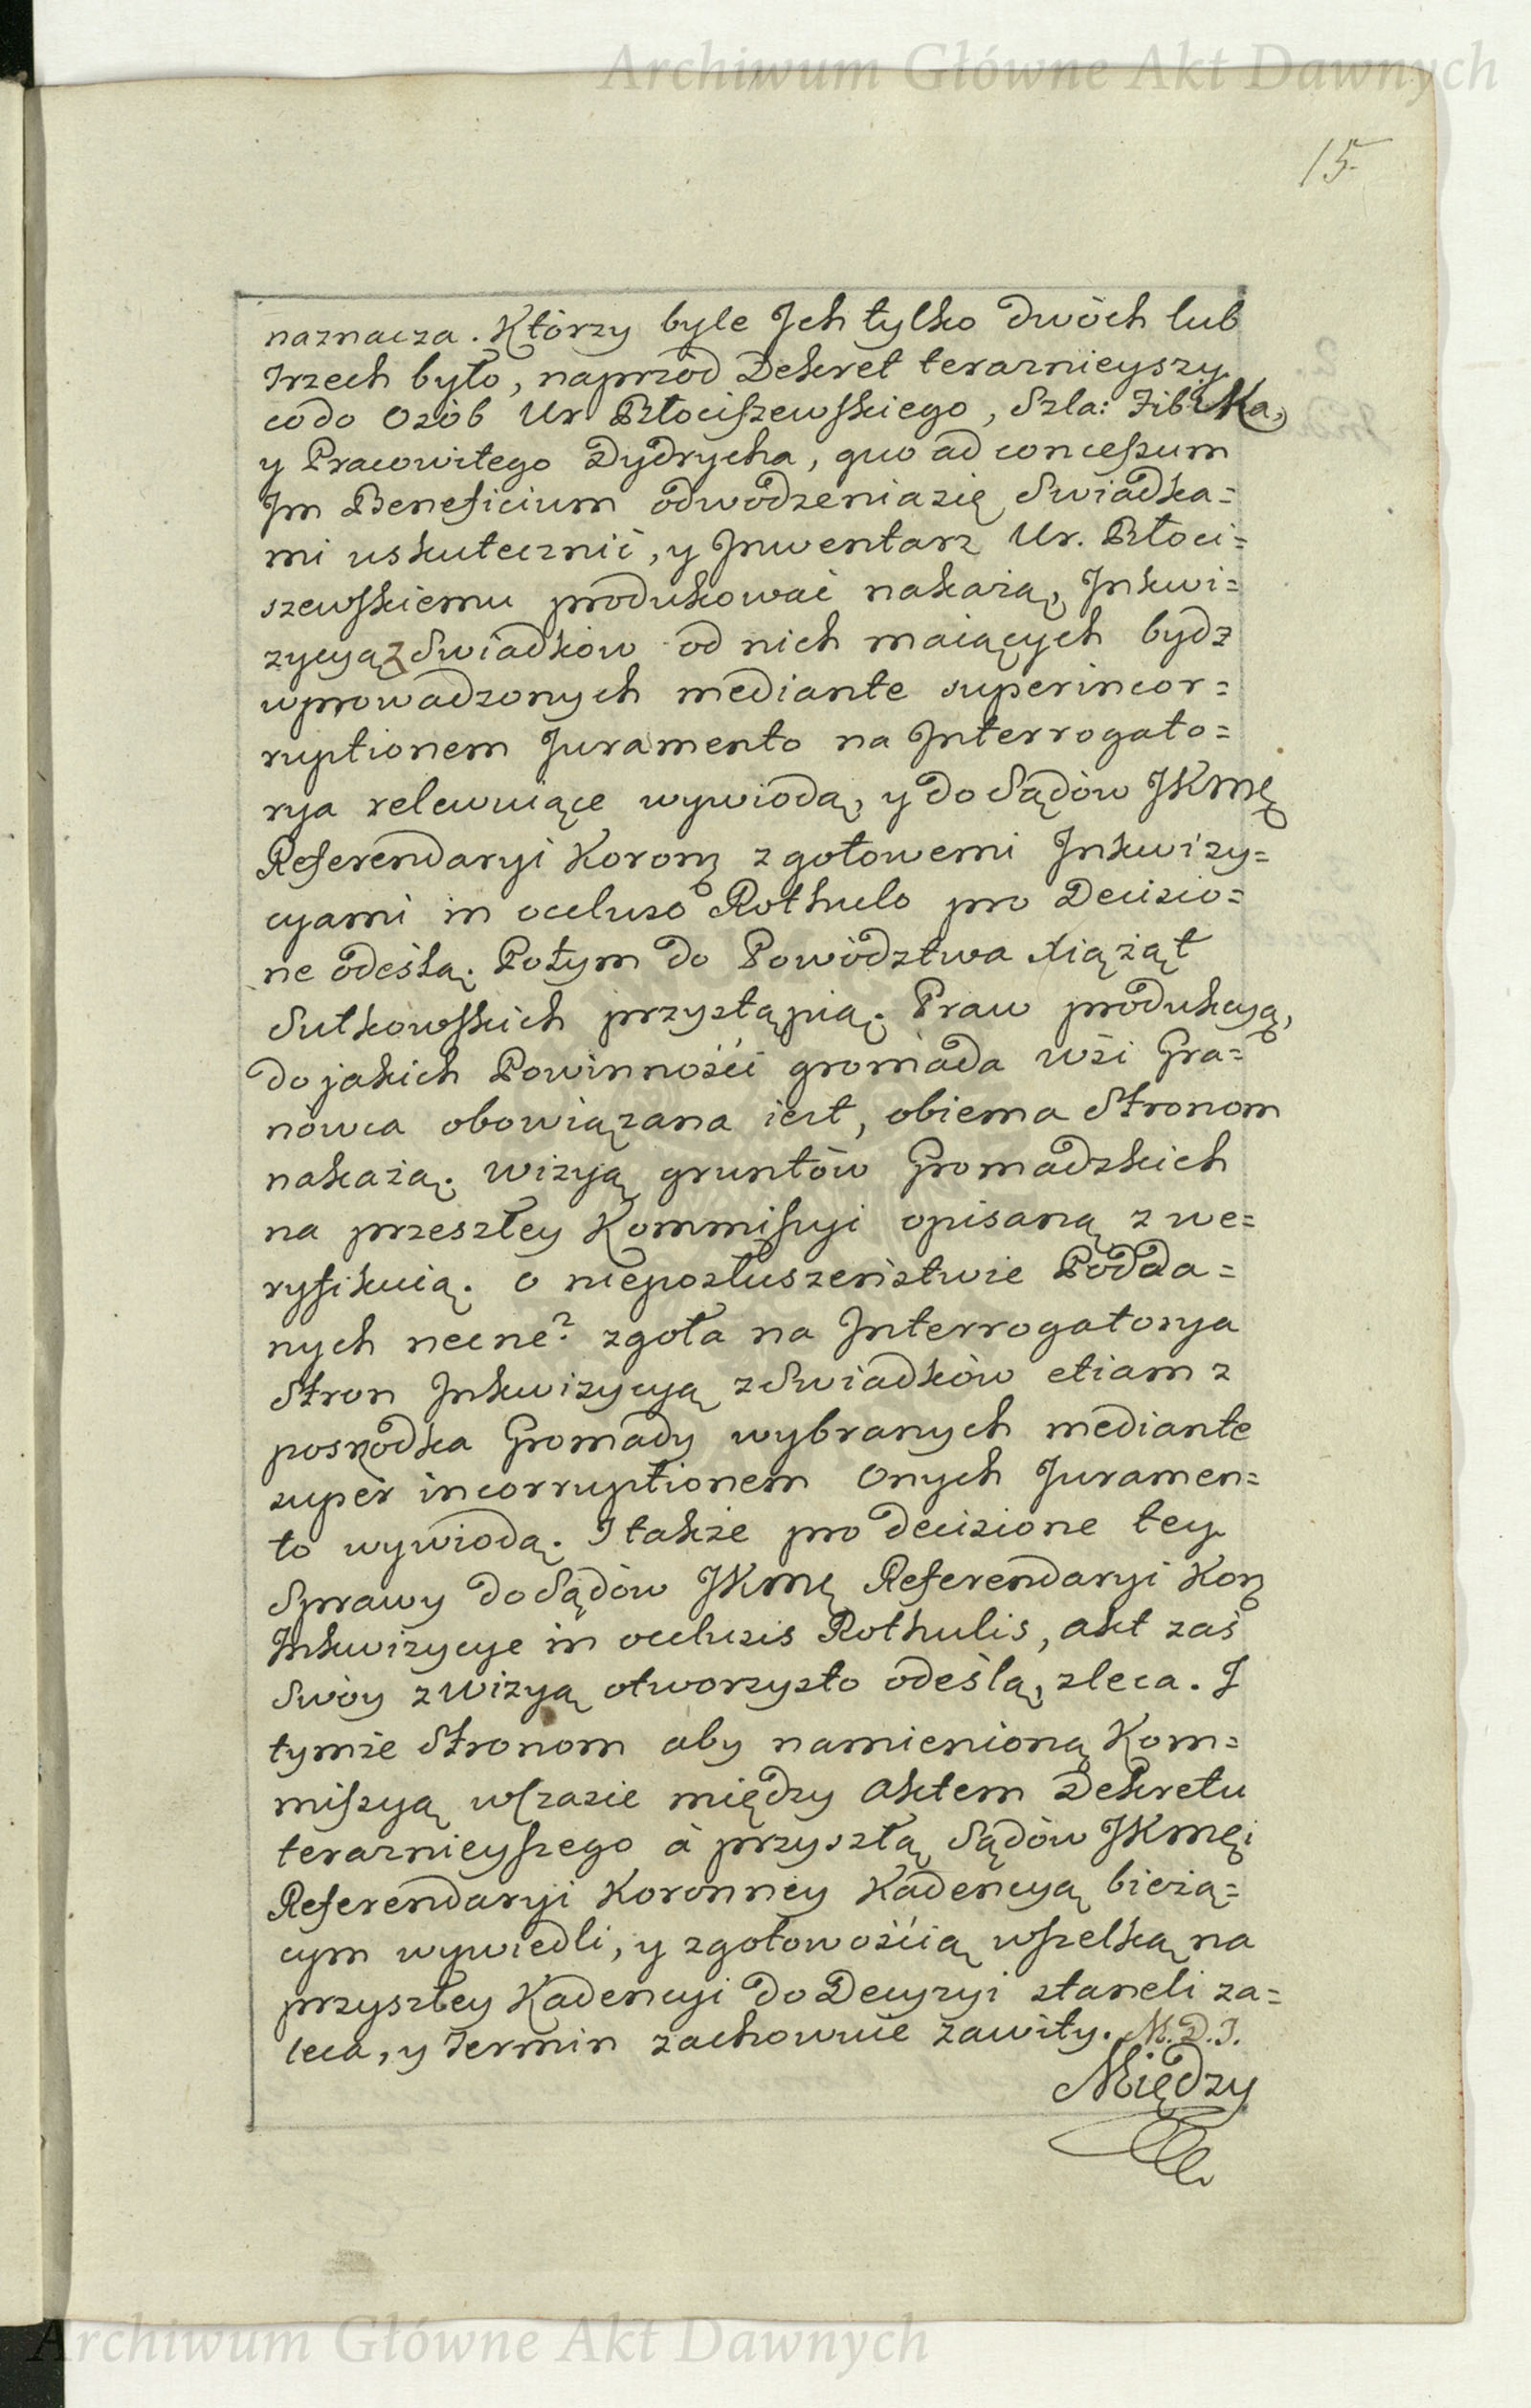 Archiwum Główne Akt Dawnych
15
naznacza. Którzy byle Jch tylko dwóch lub
Trzech było, naprzód Dekret teraznieyszy
co do Osób Ur Błociszewskiego, Szla: Fibika,
y Pracowitego Dydrycha, quo ad concessum
Jm Beneficium odwodzenia się Swiadka=
mi uskutecznić, y Jnwentarz Ur. Błoci=
szewskiemu produkować nakażą, Jnkwi=
zycyą z Swiadków od nich maiących bydz
wprowadzonych mediante super incor=
ruptionem Juramento na Jnterrogato=
rya relewuiące wywiodą, y do Sądów JKMę
Referendaryi Koronę z gotowemi Jnkwizy=
cyami in occluso Rothulo pro Decisio=
ne odeślą. Potym do Powództwa Xiążąt
Sułkowskich przystąpią. Praw produkcyą,
do jakich Powinności gromada wsi Gra=
nówca obowiązana iest, obiema Stronom
nakażą. Wizyą gruntów Gromadzkich
na przeszłey Kommissyi opisaną zwe=
ryfikuią. o nieposłuszeństwie Podda=
nych necne? zgoła na Jnterrogatorya
Stron Jnkwizycyą z Swiadków etiam z
pośrzodka Gromady wybranych mediante
super incorruptionem Onych Juramen=
to wywiodą. J także pro decisione tey
Sprawy do Sądów JKMę Referendaryi Korę
Jnkwizycye in occlusis Rothulis, akt zaś
Swóy z wizyą otworzysto odeślą, zleca. J
tymże Stronom aby namienioną Kom=
missyą wczasie między Aktem Dekretu
terazniejszego à przyszłą Sądów JKMęi
Referendaryi Koronney Kadencyą bieżą=
cym wywiedli, y z gotowością wszelką na
przyszłey Kadencyi do Decyzyi staneli za=
leca, y Termin zachowuie zawity. M.D.J.
Między
Archiwum Główne Akt Dawnych